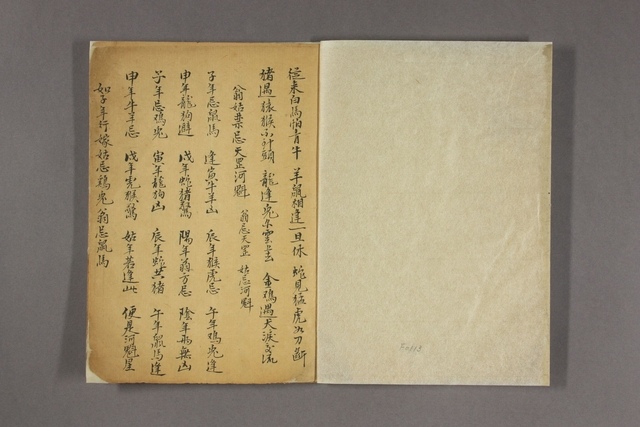 從来白馬怕青牛 羊鼠相逢一旦休 蛇見猛虎如刀断
猪遇猿猴不到頭 龍逢兎 金鷄遇犬淚交流
翁姑禁忌天罡河魁 翁忌天罡 姑忌河魁
子年忌鼠馬 逢寅牛羊凶 辰年猴虎忌 午年鷄兎逢
申年龍狗避 戌年蛇猪驚 陽年翁方忌 陰年凶
子年忌鷄兎 寅年龍狗凶 辰年蛇共猪 午年鼠馬逢
申年牛羊忌 戌年虎猴驚 姑年若逢此 便是河魁星
如子年行嫁姑忌鷄兎翁忌鼠馬